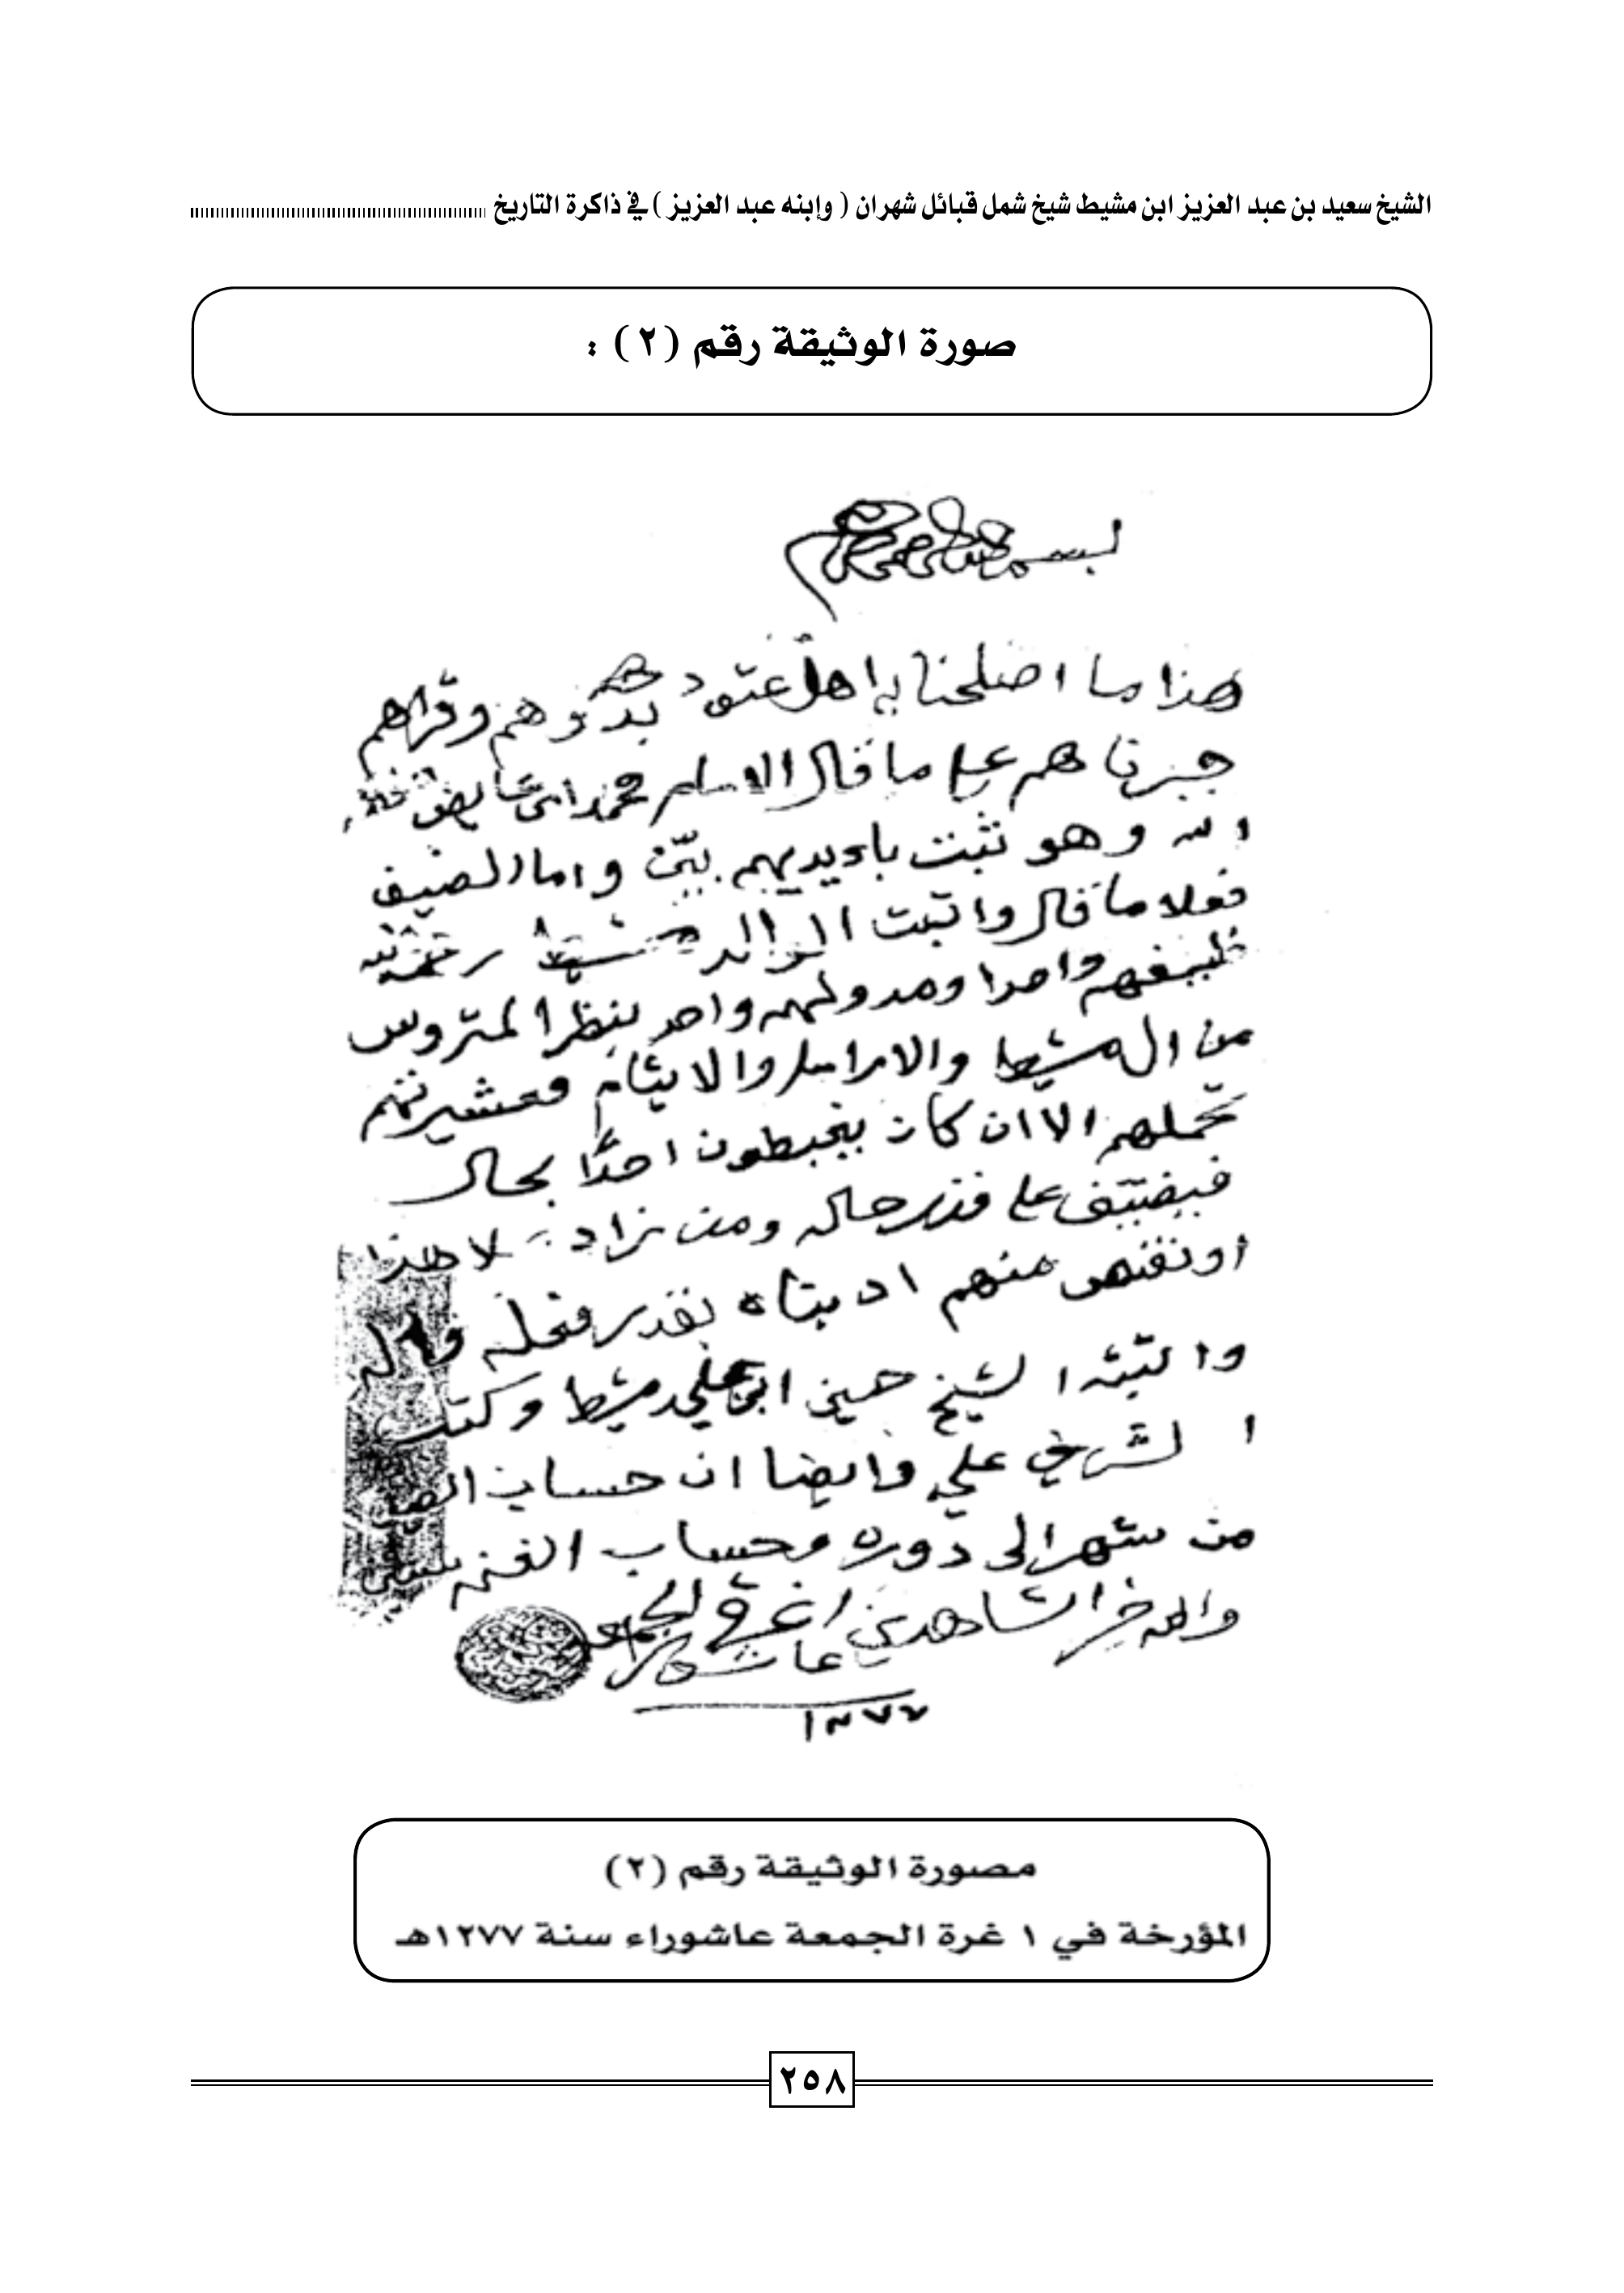 الشيخ سعيد بن عبد العزيز ابن مشيط شيخ شمل قبائل شهران ( وإبنه عبد العزيز ) في ذاكرة التاريخ
صورة الوثيقة رقم (٢) :
بسم الله الرحمن الرحيم
هذا ما اصلحنا به اهل عتود بدوهم وقراهم
جبرناهم على ما قال محمد ابن عايض
الله وهو تثبت بايديهم واما الضيف
فعلا ما قال واثبت الوالد مشيط رحمه الله
واحدا ومدولهم واحد بنظر المتروس
من ال مشيط والامراسل والايتام وعشيرتهم
تحملهم الا ان كان يخبطون احدًا بحال
فيضيف على قدر حاله ومن زاد على هذا
او نقص منهم ادبناه بقدر فعله
واثبته الشيخ حسين ابن علي مشيط وكتب
الشرفي علي وايضا ان حساب
من شهر الى دوره وحساب الغنم
والله خير الشاهدين ١ غرة الجمعة
عاشوراء
١٢٧٧
مصورة الوثيقة رقم (٢)
المؤرخة في ١ غرة الجمعة عاشوراء سنة ١٢٧٧هـ
٢٥٨